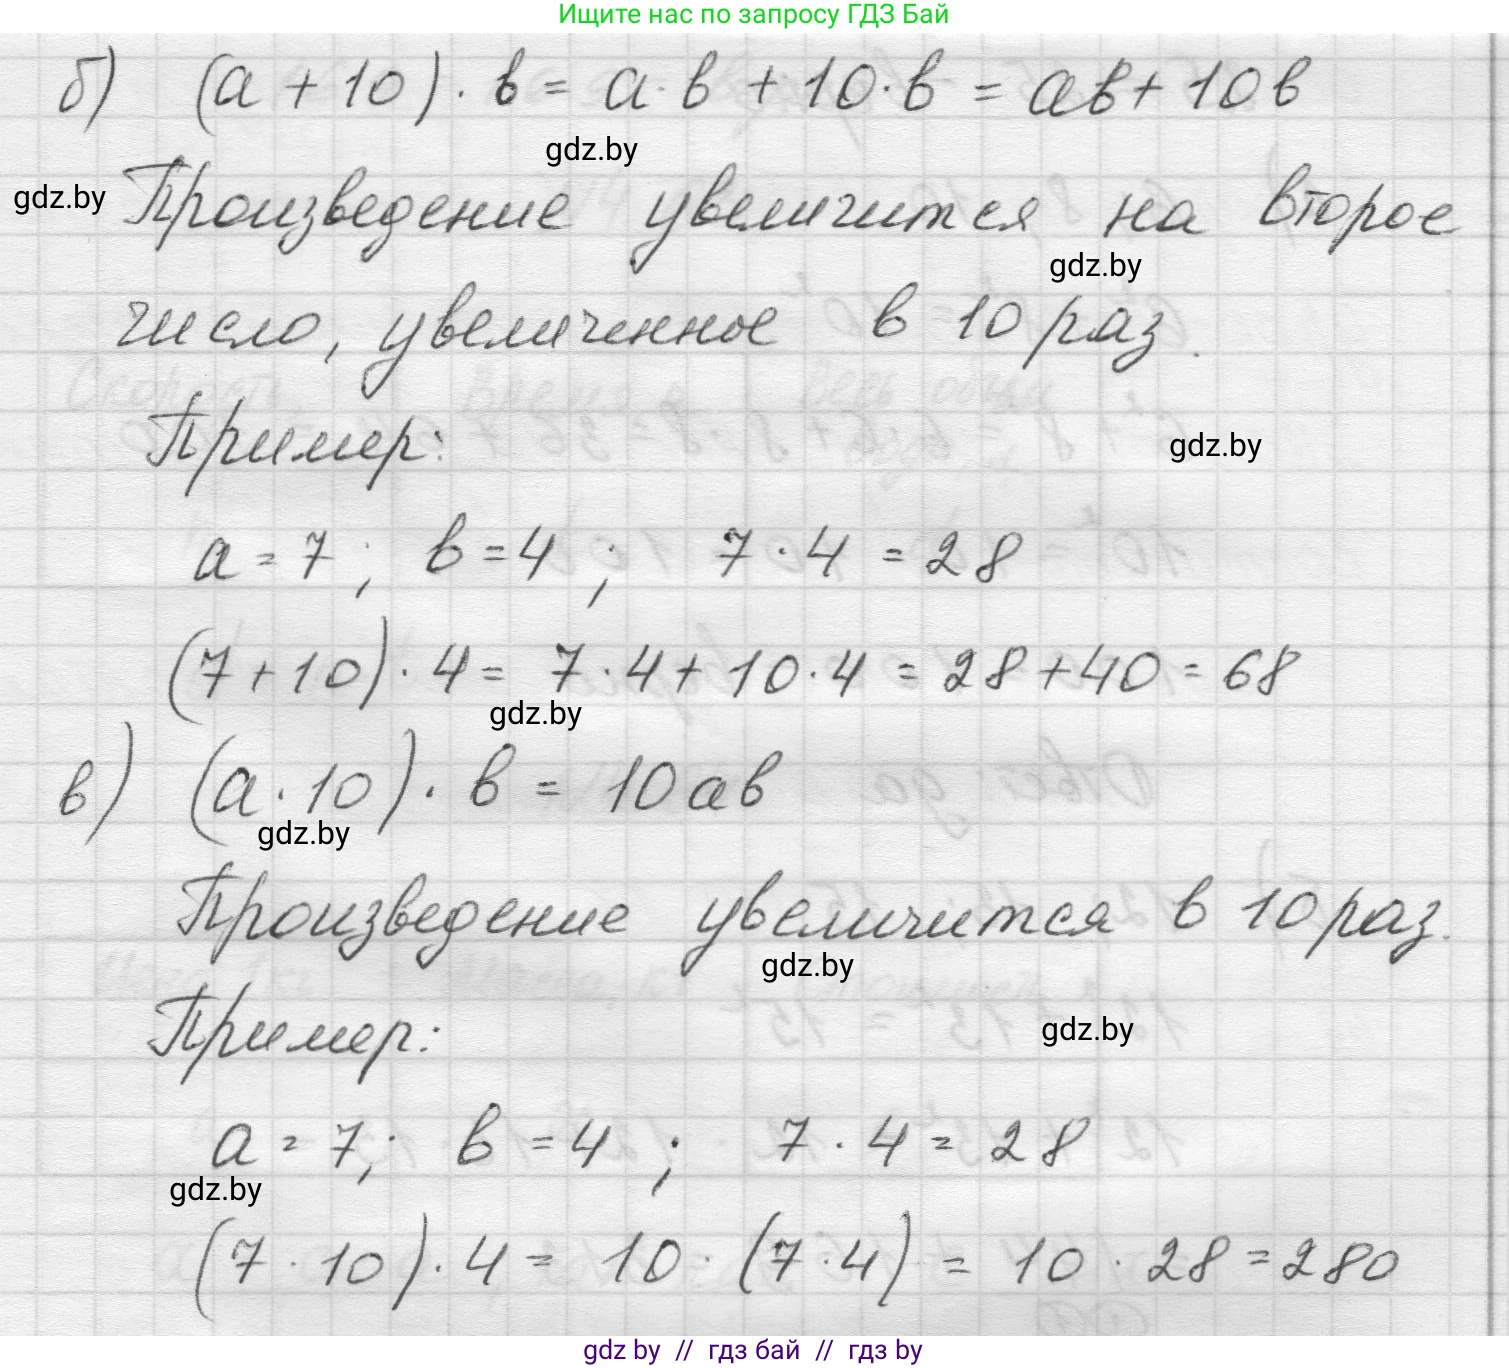 Ищите нас по запросу ГДЗ Бай
б) (а + 10) · в = а · в + 10 · в = ав + 10в
gdz.by
gdz.by
Произведение увеличится на второе
gdz.by
число, увеличенное в 10 раз.
Пример:
gdz.by
а = 7 ; в = 4 ; 7 · 4 = 28
(7 + 10) · 4 = 7 · 4 + 10 · 4 = 28 + 40 = 68
gdz.by
в) (а · 10) · в = 10ав
gdz.by
Произведение увеличится в 10 раз.
gdz.by
Пример:
gdz.by
а = 7; в = 4 ; 7 · 4 = 28
gdz.by
(7 · 10) · 4 = 10 · (7 · 4) = 10 · 28 = 280
gdz by // гдз бай // гдз by